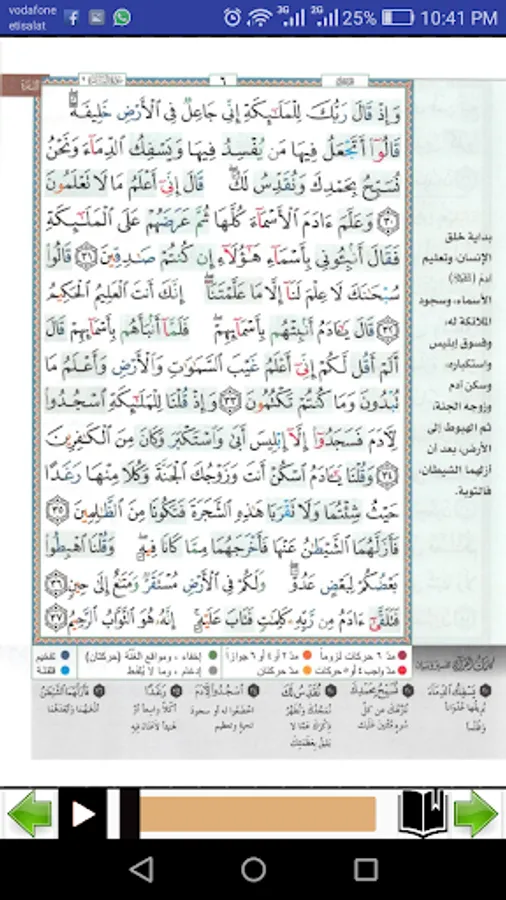 vodafone
etisalat
3G
2G
25%
10:41 PM
٦
وَإِذْ قَالَ رَبُّكَ لِلْمَلَٰٓئِكَةِ إِنِّي جَاعِلٌ فِي ٱلْأَرْضِ خَلِيفَةً ۖ
قَالُوٓا۟ أَتَجْعَلُ فِيهَا مَن يُفْسِدُ فِيهَا وَيَسْفِكُ ٱلدِّمَآءَ وَنَحْنُ
نُسَبِّحُ بِحَمْدِكَ وَنُقَدِّسُ لَكَ ۖ قَالَ إِنِّيٓ أَعْلَمُ مَا لَا تَعْلَمُونَ
﴿٣٠﴾ وَعَلَّمَ ءَادَمَ ٱلْأَسْمَآءَ كُلَّهَا ثُمَّ عَرَضَهُمْ عَلَى ٱلْمَلَٰٓئِكَةِ
فَقَالَ أَنۢبِـُٔونِي بِأَسْمَآءِ هَٰٓؤُلَآءِ إِن كُنتُمْ صَٰدِقِينَ ﴿٣١﴾ قَالُوا۟
سُبْحَٰنَكَ لَا عِلْمَ لَنَآ إِلَّا مَا عَلَّمْتَنَآ ۖ إِنَّكَ أَنتَ ٱلْعَلِيمُ ٱلْحَكِيمُ
﴿٣٢﴾ قَالَ يَٰٓـَٔادَمُ أَنۢبِئْهُم بِأَسْمَآئِهِمْ ۖ فَلَمَّآ أَنۢبَأَهُم بِأَسْمَآئِهِمْ قَالَ
أَلَمْ أَقُل لَّكُمْ إِنِّيٓ أَعْلَمُ غَيْبَ ٱلسَّمَٰوَٰتِ وَٱلْأَرْضِ وَأَعْلَمُ مَا
تُبْدُونَ وَمَا كُنتُمْ تَكْتُمُونَ ﴿٣٣﴾ وَإِذْ قُلْنَا لِلْمَلَٰٓئِكَةِ ٱسْجُدُوا۟
لِـَٔادَمَ فَسَجَدُوٓا۟ إِلَّآ إِبْلِيسَ أَبَىٰ وَٱسْتَكْبَرَ وَكَانَ مِنَ ٱلْكَٰفِرِينَ
﴿٣٤﴾ وَقُلْنَا يَٰٓـَٔادَمُ ٱسْكُنْ أَنتَ وَزَوْجُكَ ٱلْجَنَّةَ وَكُلَا مِنْهَا رَغَدًا
حَيْثُ شِئْتُمَا وَلَا تَقْرَبَا هَٰذِهِ ٱلشَّجَرَةَ فَتَكُونَا مِنَ ٱلظَّٰلِمِينَ ﴿٣٥﴾
فَأَزَلَّهُمَا ٱلشَّيْطَٰنُ عَنْهَا فَأَخْرَجَهُمَا مِمَّا كَانَا فِيهِ ۖ وَقُلْنَا ٱهْبِطُوا۟
بَعْضُكُمْ لِبَعْضٍ عَدُوٌّ ۖ وَلَكُمْ فِي ٱلْأَرْضِ مُسْتَقَرٌّ وَمَتَٰعٌ إِلَىٰ حِينٍ ﴿٣٦﴾
فَتَلَقَّىٰٓ ءَادَمُ مِن رَّبِّهِۦ كَلِمَٰتٍ فَتَابَ عَلَيْهِ ۚ إِنَّهُۥ هُوَ ٱلتَّوَّابُ ٱلرَّحِيمُ ﴿٣٧﴾
بداية خلق
الإنسان، وتعليم
آدم
الأسماء، وسجود
الملائكة له،
وفسوق إبليس
واستكباره،
وسكن آدم
وزوجه الجنة،
ثم الهبوط إلى
الأرض، بعد أن
أزلهما الشيطان،
فالتوبة.
مدّ ٦ حركات لزوماً مدّ ٢ أو ٤ أو ٦ جوازاً إخفاء ، ومواقع الغُنَّة (حركتان) تفخيم
مدّ واجب ٤ أو ٥ حركات مدّ حركتان إدغام ، وما لا يُلفَظ قلقلة
يَسْفِكُ الدِّمَاءَ
نُسَبِّحُ بِحَمْدِكَ
نُقَدِّسُ لَكَ
اسْجُدُوا لِآدَمَ
اخضَعُوا له أو سجود
تحيةٍ وتعظيم
رَغَدًا
فَأَزَلَّهُمَا الشَّيْطَانُ